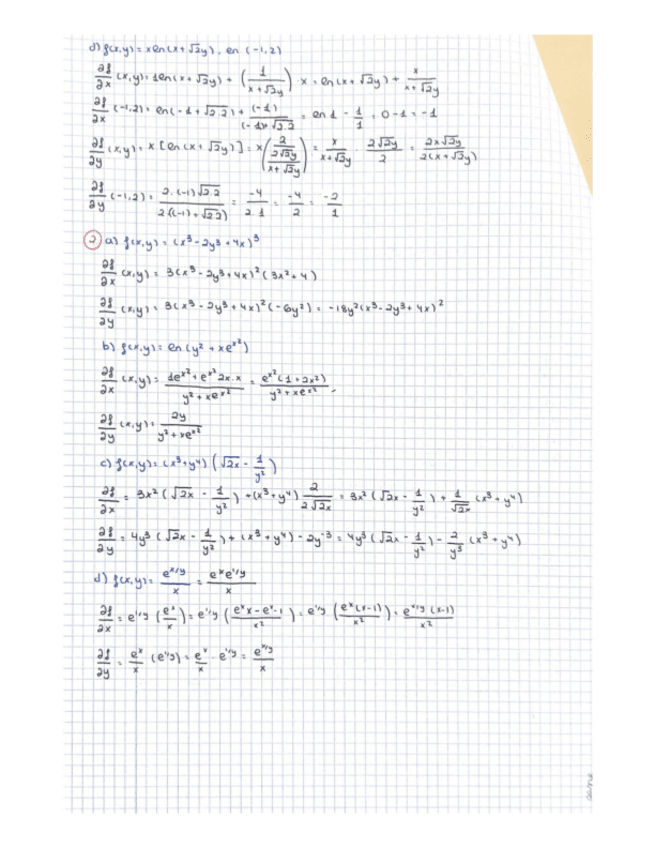 d) f(x,y) = x ln(x + √2y), en (-1,2)
∂f/∂x (x,y) = 1 ln(x + √2y) + (1/(x+√2y)) · x = ln(x + √2y) + x/(x+√2y)
∂f/∂x (-1,2) = ln(-1 + √2·2) + (-1)/((-1)+√2·2) = ln 1 - 1/1 = 0 - 1 = -1
∂f/∂y (x,y) = x [ln(x + √2y)] = x((2/(2√2y))/(x+√2y)) = x/(x+√2y) · 2√2y/2 = 2x√2y/(2(x+√2y))
∂f/∂y (-1,2) = 2·(-1)√2·2/(2((-1)+√2·2)) = -4/(2·1) = -4/2 = -2/1
2 a) f(x,y) = (x³ - 2y³ + 4x)³
∂f/∂x (x,y) = 3(x³ - 2y³ + 4x)² (3x² + 4)
∂f/∂y (x,y) = 3(x³ - 2y³ + 4x)² (-6y²) = -18y²(x³ - 2y³ + 4x)²
b) f(x,y) = ln(y² + xeˣ²)
∂f/∂x (x,y) = (1eˣ² + eˣ² 2x·x)/(y² + xeˣ²) = eˣ²(1 + 2x²)/(y² + xeˣ²)
∂f/∂y (x,y) = 2y/(y² + xeˣ²)
c) f(x,y) = (x³ + y⁴)(√2x - 1/y²)
∂f/∂x = 3x²(√2x - 1/y²) + (x³ + y⁴) 2/(2√2x) = 3x²(√2x - 1/y²) + 1/√2x (x³ + y⁴)
∂f/∂y = 4y³(√2x - 1/y²) + (x³ + y⁴) - 2y⁻³ = 4y³(√2x - 1/y²) - 2/y³ (x³ + y⁴)
d) f(x,y) = e^(x/y)/x = eˣe^(1/y)/x
∂f/∂x = e^(1/y) (eˣ/x) = e^(1/y) ((eˣx - eˣ·1)/x²) = e^(1/y) (eˣ(x-1)/x²) = e^(x/y)(x-1)/x²
∂f/∂y = eˣ/x (e^(1/y)) = eˣ/x · e^(1/y) = e^(x/y)/x